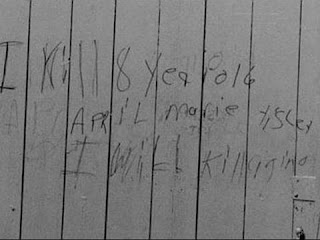 I Kill 8 yea Pold
APRIL marie tisley
I will kill agina